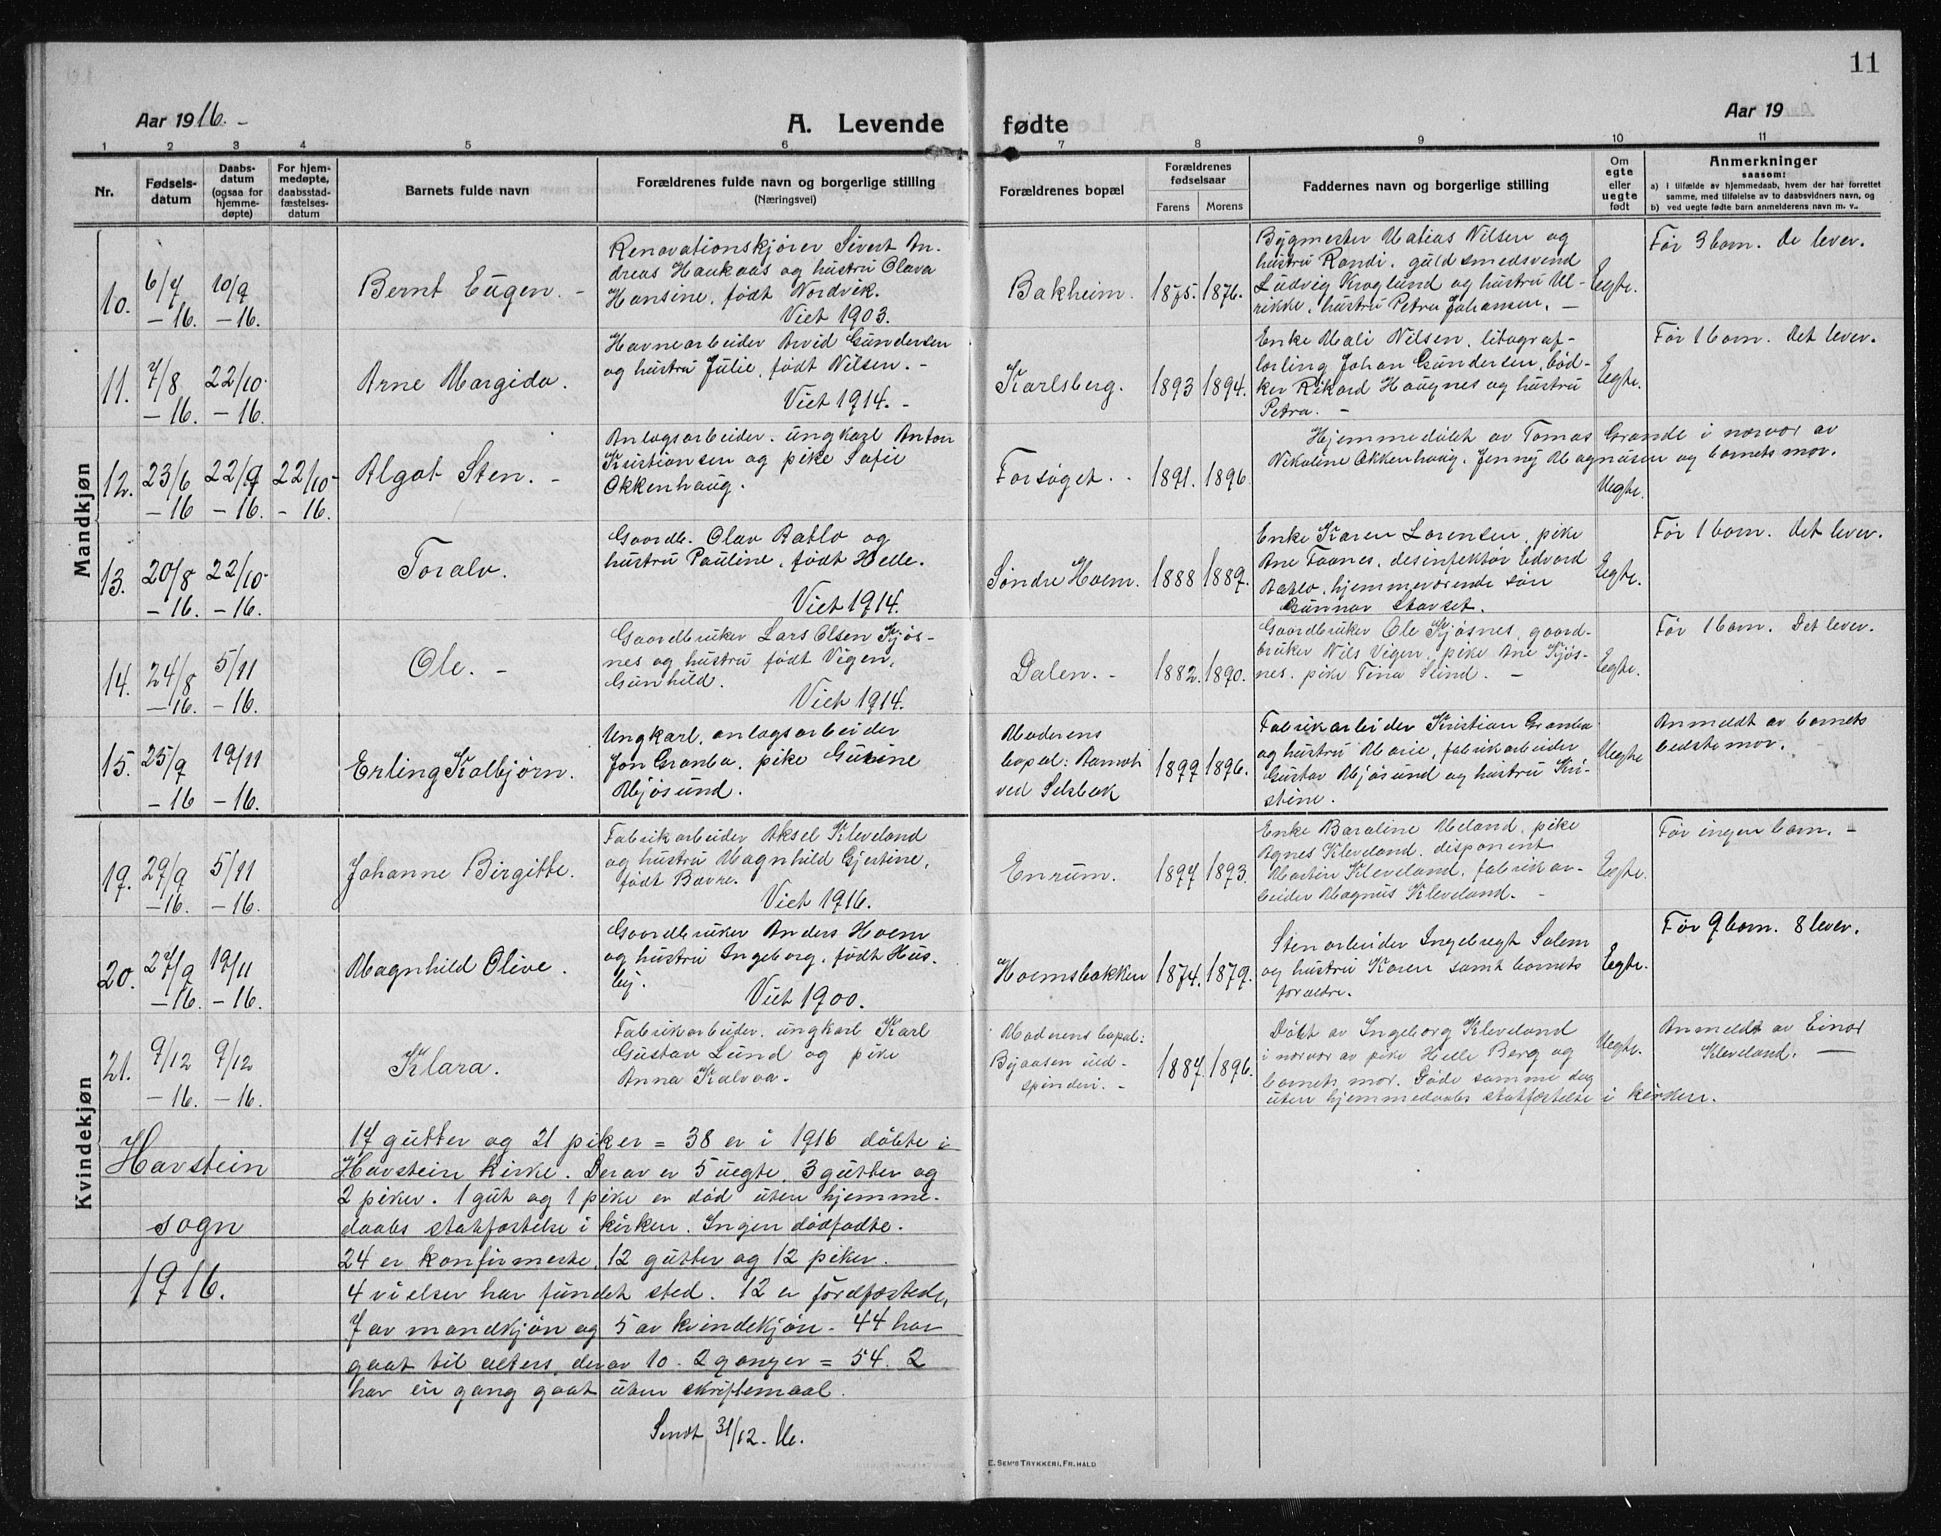 11
Aar 1916. -
A. Levende
fødte
Aar 19
1 2 3 4 5 6 7 8 9 10 11
Nr.
Fødsels-
datum
Daabs-
datum
(ogsaa for
hjemme-
døpte)
For hjem-
medøpte,
daabsstad-
fæstelses-
datum
Barnets fulde navn
Forældrenes fulde navn og borgerlige stilling
(Næringsvei)
Forældrenes bopæl
Forældrenes
fødselsaar
Farens Morens
Faddernes navn og borgerlige stilling
Om
egte
eller
uegte
født
Anmerkninger
saasom:
a) I tilfælde av hjemmedaab, hvem der har forrettet
samme, med tilføielse av to daabsvidners navn, og
b) ved uegte fødte barn anmelderens navn m. v..
Mandkjøn
10.
6/7
- 16.
10/9
- 16.
Bernt Eugen. -
Renovationskjører Sivert An-
dreas Haukaas og hustru Olava
Hansine, født Nordvik.
Viet 1903.
Bakheim.
1875. 1876.
Bygmester Matias Nilsen og
hustru Randi, guldsmedsvend
Ludvig Kroglund og hustru Ul-
rikke, hustru Petra Johansen. -
Egte.
Før 3 barn. De lever.
11.
7/8
- 16.
22/10
- 16.
Arne Margido.
Havnearbeider Arvid Gundersen
og hustru Julie, født Nilsen. -
Viet 1914. -
Karlsberg.
1893 1894.
Enke Mali Nilsen, litograf-
lærling Johan Gundersen, bød-
ker Rikard Haugnes og hustru
Petra. -
Egte.
Før 1 barn. Det lever.
12.
23/6
- 16
22/9
- 16.
22/10
- 16.
Algot Sten. -
Anlagsarbeider, ungkarl Anton
Kristiansen og pike Sofie
Okkenhaug.
Forsøget. -
1891. 1896
Hjemmedøbt av Tomas Grande i nærvær av
Nikoline Okkenhaug, Jenny Magnusen og barnets mor.
Uegte.
13.
20/8
- 16.
22/10
- 16.
Toralv.
Gaardb. Olav Ratlo og
hustru Pauline, født Helle.
Viet 1914.
Søndre Hoem.
1888 1889.
Enke Karen Lorensen, pike
Ane Foanes, desinfektør Edvard
Ratlo, hjemmeværende søn
Gunnar Stavset.
Egte.
Før 1 barn. Det lever.
14.
24/8
- 16.
5/11
- 16.
Ole. -
Gaardbruker Lars Olsen Kjøs-
nes og hustru født Vigen,
Gunhild.
Viet 1914.
Dalen. -
1882. 1890.
Gaardbruker Ole Kjøsnes, gaard-
bruker Nils Vigen, pike Ane Kjøs-
nes, pike Tina Slind. -
Egte.
Før 1 barn. Det lever.
15.
25/9
- 16
19/11
- 16.
Erling Kolbjørn.
Ungkarl, anlagsarbeider
Jon Granbo, pike Gurine
Mjøsund.
Moderens
bopæl: Aamot
ved Selsbak
1899 1896.
Fabrikarbeider Kristian Granbo
og hustru Marie, fabrikarbeider
Gustav Mjøsund og hustru Kri-
stine.
Uegte
Anmeldt av barnets
bedstemor.
Kvindekjøn
19.
29/9
- 16.
5/11
- 16.
Johanne Birgitte.
Fabrikarbeider Aksel Kleveland
og hustru Magnhild Gjertine,
født Bavre.
Viet 1916.
Enrum.
1897 1893.
Enke Baroline Meland, pike
Agnes Kleveland, disponent
Martin Kleveland, fabrikar-
beider Magnus Kleveland. -
Egte.
Før ingen barn. -
20.
27/9
- 16.
19/11
- 16.
Magnhild Olive.
Gaardbruker Anders Hoem
og hustru Ingeborg, født Hus-
by.
Viet 1900.
Hoemsbakken
1874. 1879.
Stenarbeider Ingebregt Solem
og hustru Karen samt barnets
forældre.
Egte.
Før 9 barn. 8 lever.
21.
9/12
- 16.
9/12
- 16.
Klara.
Fabrikarbeider, ungkarl Karl
Gustav Lund og pike
Anna Kalvaa.
Moderens bopæl:
Byaasen uld-
spinderi. -
1887. 1896.
Døbt av Ingeborg Kleveland
i nærvær av pike Helle Berg og
barnets mor. Døde samme dag
uten hjemmedaabs statfæstelse i kirken.
Uegte.
Anmeldt av Einar
Kleveland. -
Havstein
sogn
1916.
17 gutter og 21 piker = 38 er i 1916 døbte i
Havstein kirke. Derav er 5 uegte, 3 gutter og
2 piker. 1 gut og 1 pike er død uten hjemme-
daabs statfæstelse i kirken. Ingen dødfødte.
24 er konfirmerte, 12 gutter og 12 piker.
4 vielser har fundet sted. 12 er jordfæstede,
7 av mandkjøn og 5 av kvindekjøn. 44 har
gaat til alters, derav 10. 2 ganger = 54. 2
har en gang gaat uten skriftemaal.
Sendt 31/12.
E. Sem's Trykkeri, Fr.hald